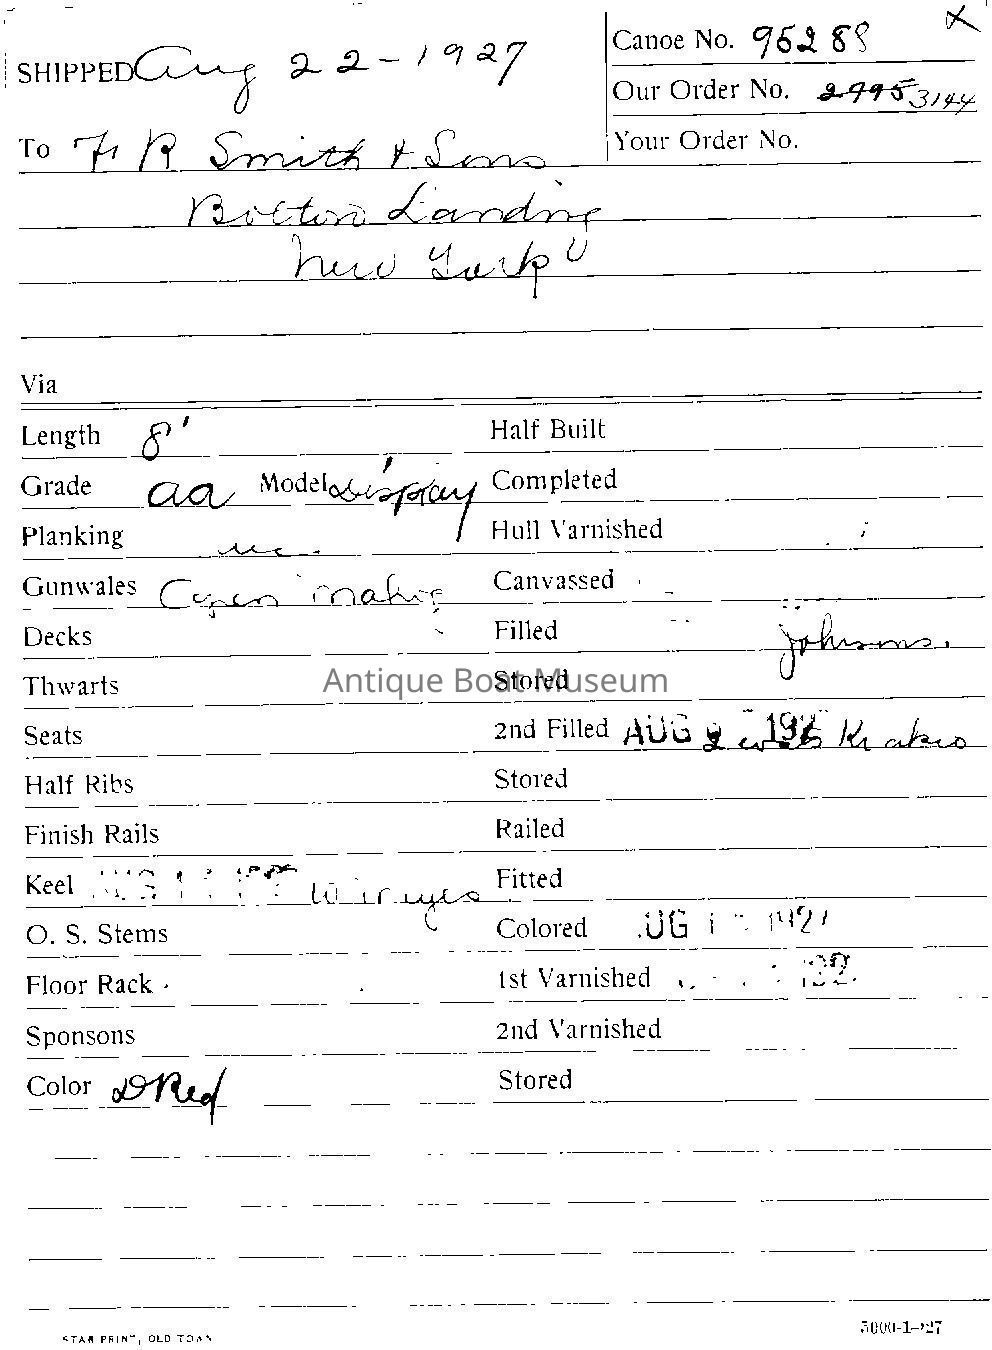 SHIPPED Aug 22-1927
Canoe No. 95288
Our Order No. 2995 3144
Your Order No.
To F R Smith & Sons
Bolton Landing
New York
Via
Length 8'
Half Built
Grade aa Model Display
Completed
Planking
Hull Varnished
Gunwales Open mahog
Canvassed
Decks
Filled Johnsons.
Thwarts
Stored
Antique Boat Museum
Seats
2nd Filled AUG
Half Ribs
Stored
Finish Rails
Railed
Keel
Fitted
O. S. Stems
Colored UG 1 1927
Floor Rack
1st Varnished
Sponsons
2nd Varnished
Color D Red
Stored
STAR PRINT, OLD TOWN
5000-1-'27